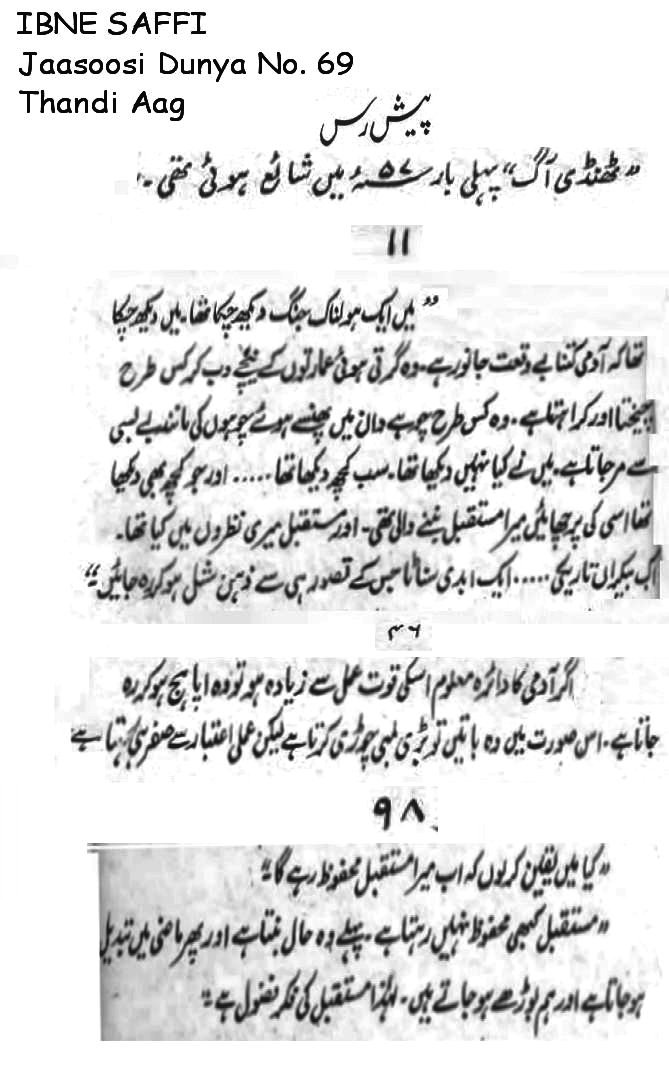 IBNE SAFFI
Jaasoosi Dunya No. 69
Thandi Aag
پیش رس
”ٹھنڈی آگ“ پہلی بار ۵۷ء میں شائع ہوئی تھی۔
۱۱
”میں ایک ہولناک جنگ دیکھ چکا تھا۔ میں دیکھ چکا
تھا کہ آدمی کتنا بے وقعت جانور ہے۔ وہ گرتی ہوئی عمارتوں کے نیچے دب کر کس طرح
چیختا اور کراہتا ہے۔ وہ کس طرح چوہے دان میں پھنسے ہوئے چوہوں کی مانند بے بسی
سے مر جاتا ہے۔ میں نے کیا نہیں دیکھا تھا۔ سب کچھ دیکھا تھا ..... اور جو کچھ بھی دیکھا
تھا اسی کی پرچھائیں میرا مستقبل بننے والی تھی۔ اور مستقبل میری نظروں میں کیا تھا۔
اک بیکراں تاریکی ..... ایک ابدی سناٹا جس کے تصور ہی سے ذہن شل ہو کر رہ جائیں“
۴۶
اگر آدمی کا دائرہ معلوم اسکی قوت عمل سے زیادہ ہو تو وہ اپاہج ہو کر رہ
جاتا ہے۔ اس صورت میں وہ باتیں تو بڑی لمبی چوڑی کرتا ہے لیکن عملی اعتبار سے صفر ہی رہتا ہے
۹۸
”کیا میں یقین کر لوں کہ اب میرا مستقبل محفوظ رہے گا“
”مستقبل کبھی محفوظ نہیں رہتا ہے۔ پہلے وہ حال بنتا ہے اور پھر ماضی میں تبدیل
ہو جاتا ہے اور ہم بوڑھے ہو جاتے ہیں۔ لہٰذا مستقبل کی فکر فضول ہے“